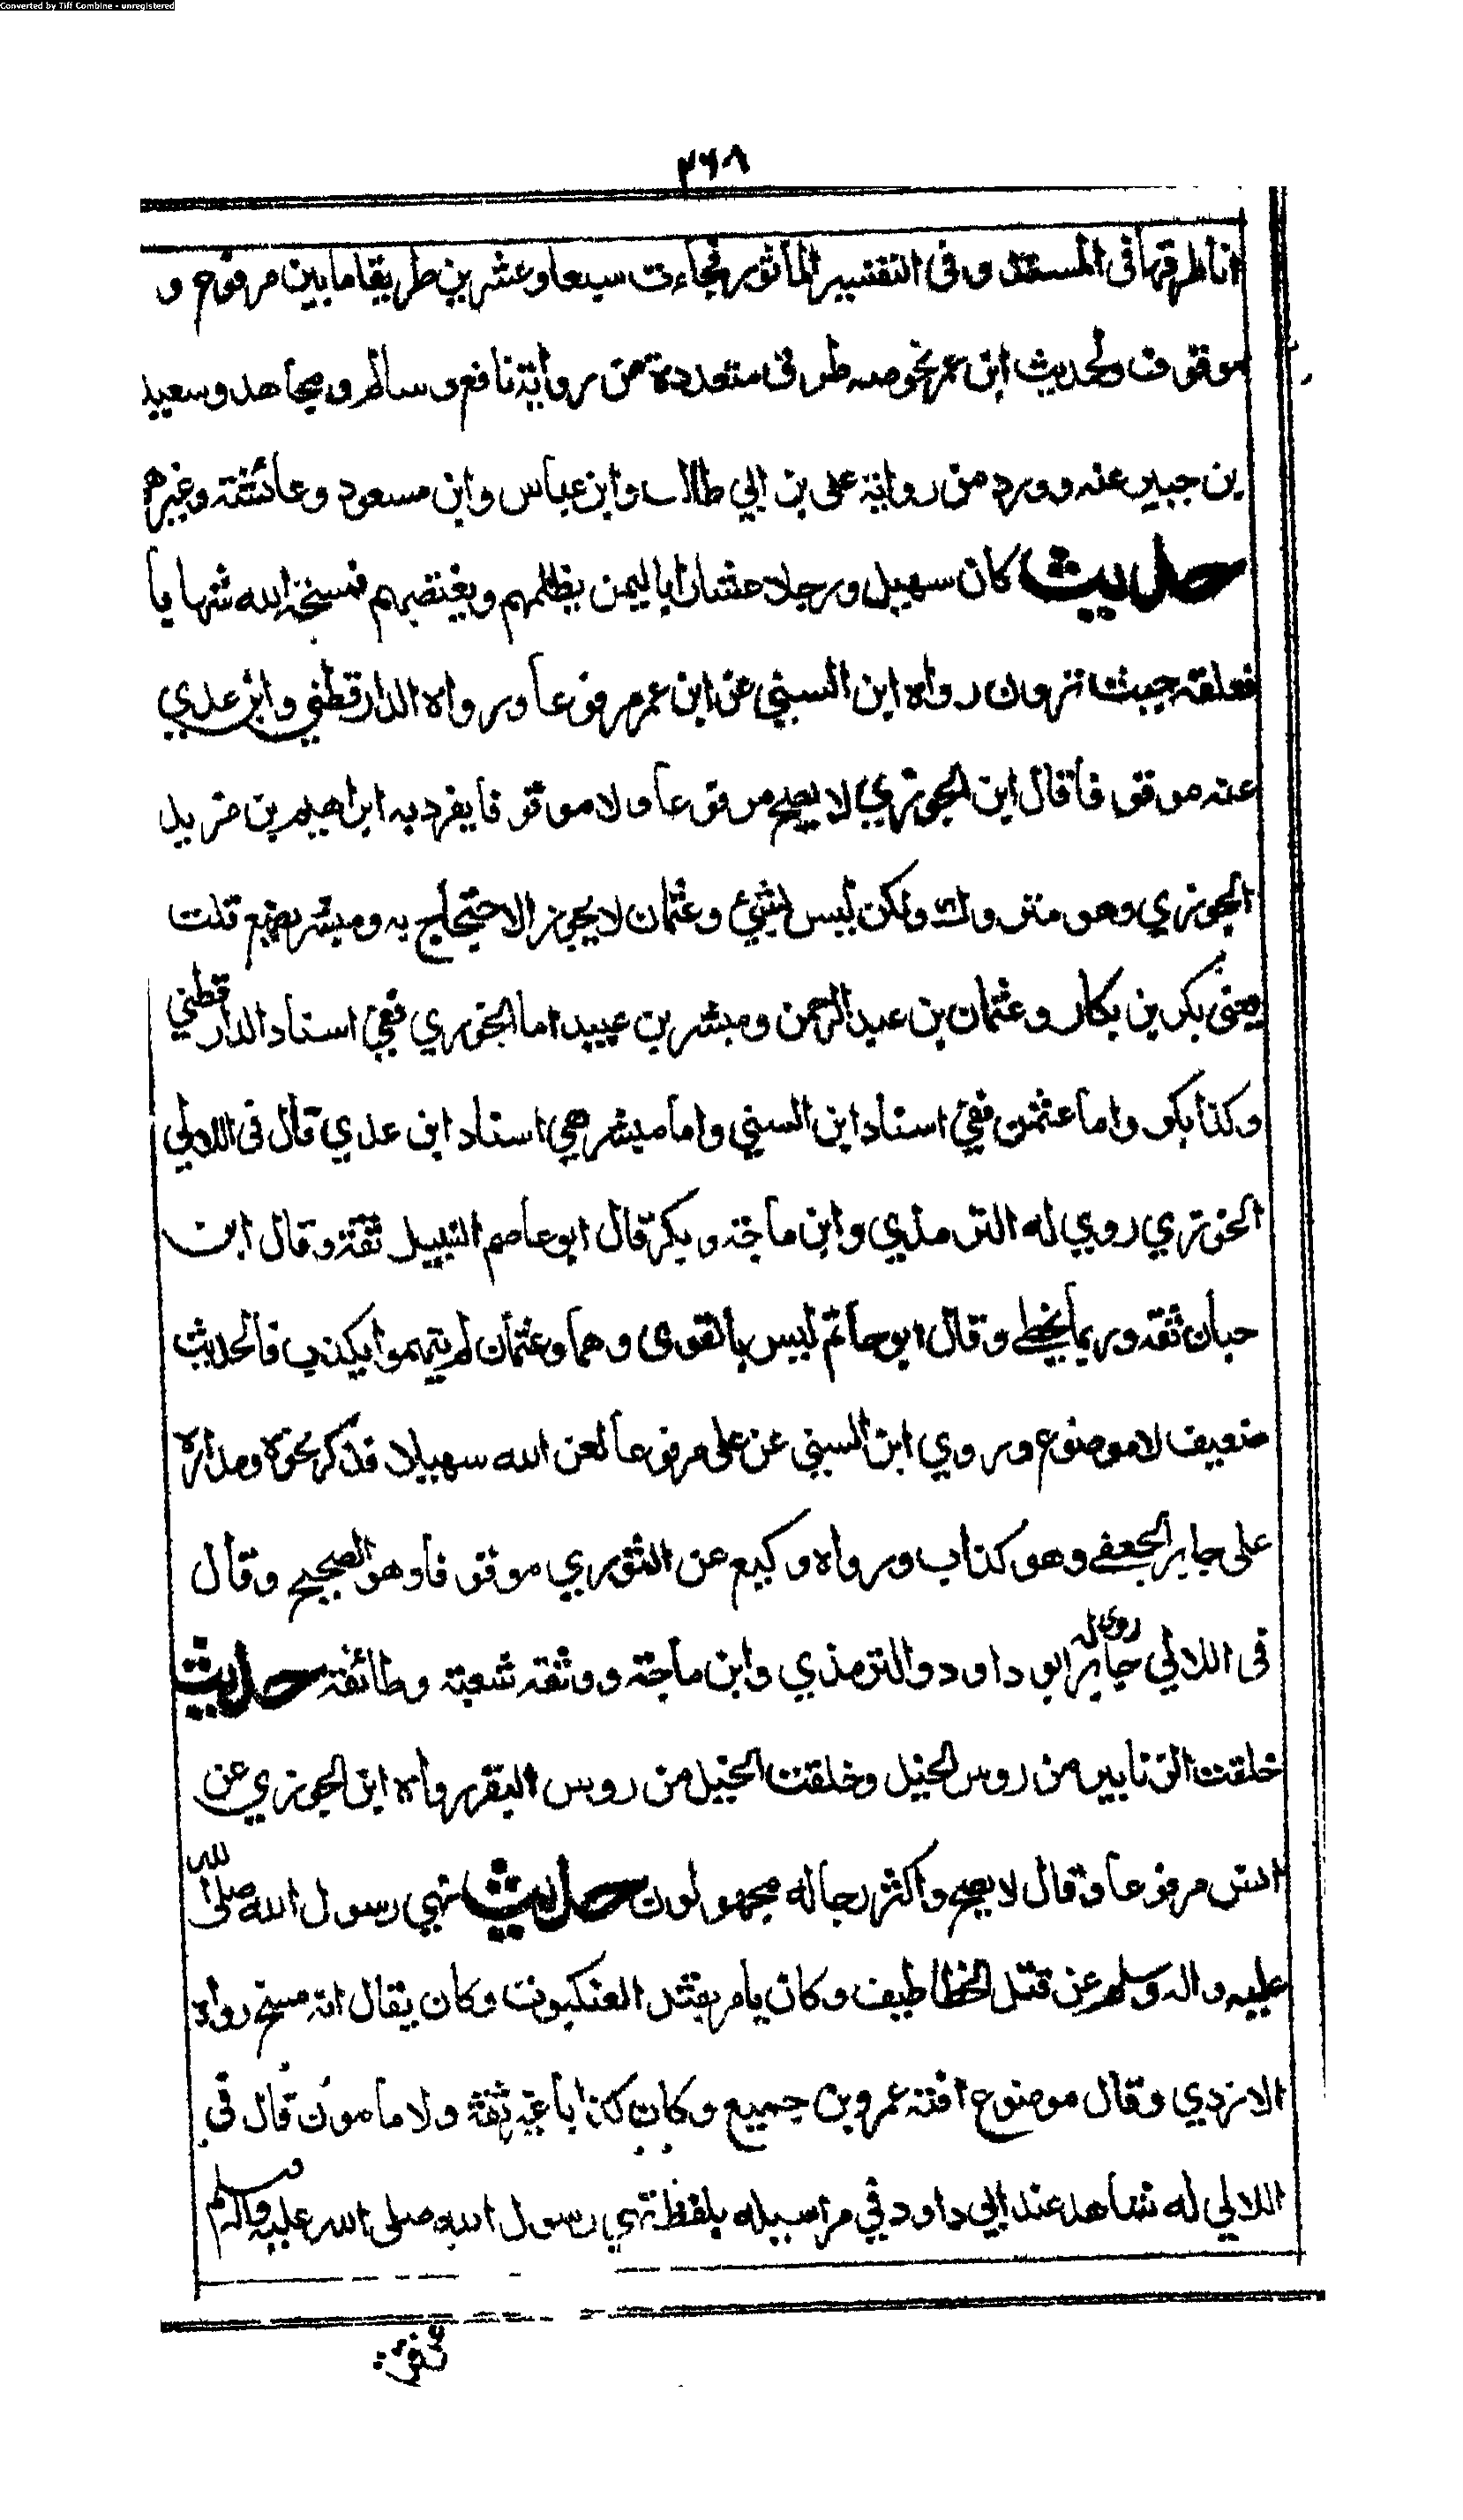 Converted by Tiff Combine - unregistered
۲۶۸
انا طرقها فى المسند وفى التفسير المأثور فجاءت سبعا وعشرين طريقا ما بين مرفوع و
موقوف ولحديث ابن عمر بخوصه طرق متعددة من رواية نافع وسالم ومجاهد وسعيد
بن جبير عنه وورد من رواية على بن ابي طالب وابن عباس وابن مسعود وعائشة وغيرهم
حديث كان سهيل ورجلا عشارا باليمن يظلمهم ويغتصبهم فمسخه الله شهابا
فعلقه حيث ترون رواه ابن السني عن ابن عمر مرفوعا ورواه الدارقطني وابن عدي
عنه موقوفا قال ابن الجوزي لا يصح مرفوعا ولا موقوفا يفرد به ابراهيم بن يزيد
الجوزي وهو متروك ولكن ليس بشيئ وعثمان لا يجوز الاحتجاج به ومبشر يضع قلت
يعنى بكر بن بكار وعثمان بن عبد الرحمن ومبشر بن عبيد اما الخوزي ففي اسناد الدارقطني
وكذا بكر واما عثمن ففي اسناد ابن السني واما مبشر ففي اسناد ابن عدي قال فى اللالي
الخوزي روي له الترمذي وابن ماجة وبكر قال ابو عاصم النبيل ثقة وقال ابن
حبان ثقه وربما يخطي وقال ابو حاتم ليس بالقوى وهما وعثمان لم يتهموا بكذب فالحديث
ضعيف لا موضوع وروي ابن السني عن على مرفوعا لعن الله سهيلا فذكر نحوه ومداره
على جابر الجعفي وهو كذاب ورواه وكيع عن الثوري موقوفا وهو الصحيح وقال
فى اللالي جابر روى له ابو داود والترمذي وابن ماجة ووثقه شعبة وطائفة حديث
خلقت الزنابير من روس الخيل وخلقت النحل من روس البقر رواه ابن الجوزي عن
انس مرفوعا وقال لا يصح واكثر رجاله مجهولون حديث نهي رسول الله صلى الله
عليه واله وسلم عن قتل الخطاطيف وكان يامر بقتل العنكبوت وكان يقال انه مسخ رواه
الازدي وقال موضوع افته عمرو بن جميع وكان كذابا غير ثقة ولا مامون قال في
اللالي له شاهد عند ابي داود في مراسيله بلفظ نهي رسول الله صلى الله عليه واله وسلم